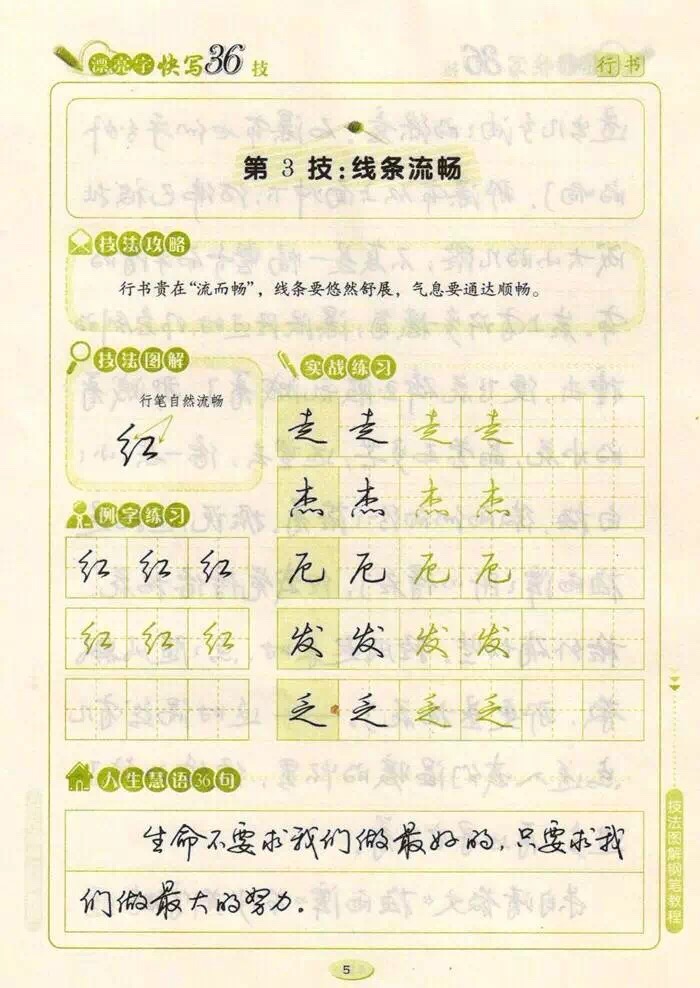 漂亮字快写36技
行书
第3技:线条流畅
技法攻略
行书贵在“流而畅”，线条要悠然舒展，气息要通达顺畅。
技法图解
行笔自然流畅
红
例字练习
红 红 红
红 红 红
实战练习
走 走 走 走
杰 杰 杰 杰
厄 厄 厄 厄
发 发 发 发
乏 乏 乏 乏
人生慧语36句
生命不要求我们做最好的,只要求我
们做最大的努力。
技法图解钢笔教程
5